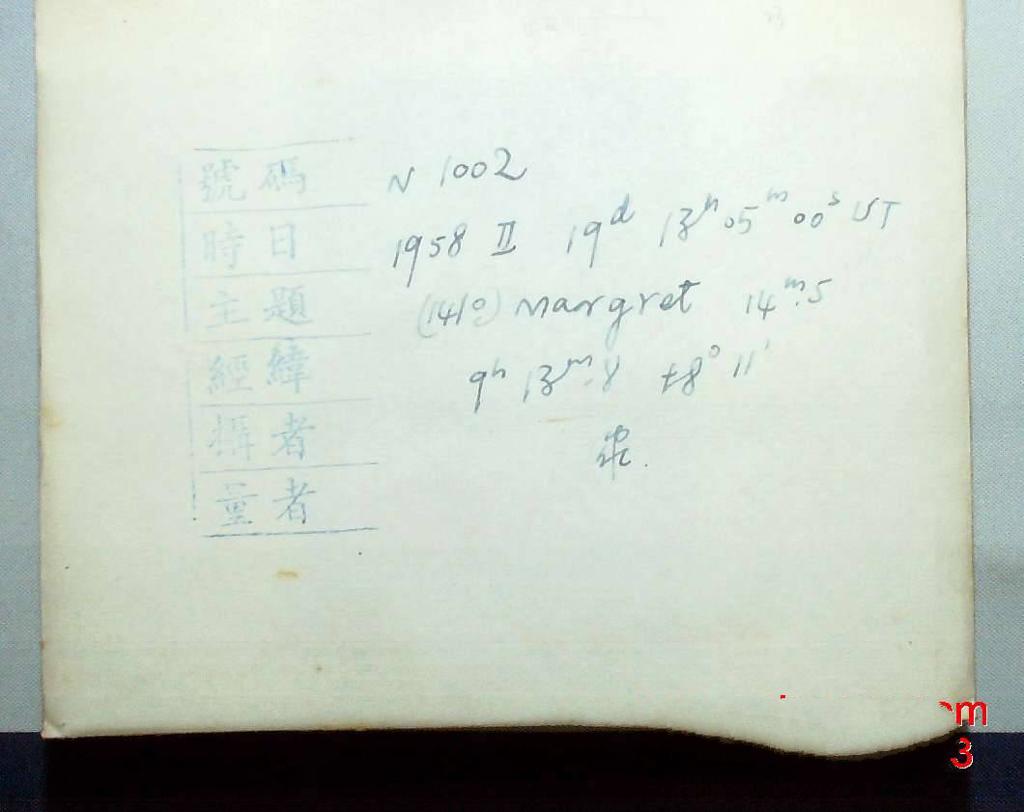 號碼 N 1002
時日 1958 II 19ᵈ 13ʰ 05ᵐ 00ˢ UT
主題 (1410) Margret 14ᵐ.5
經緯 9ʰ 13ᵐ.8 +8° 11'
攝者
量者
m
3